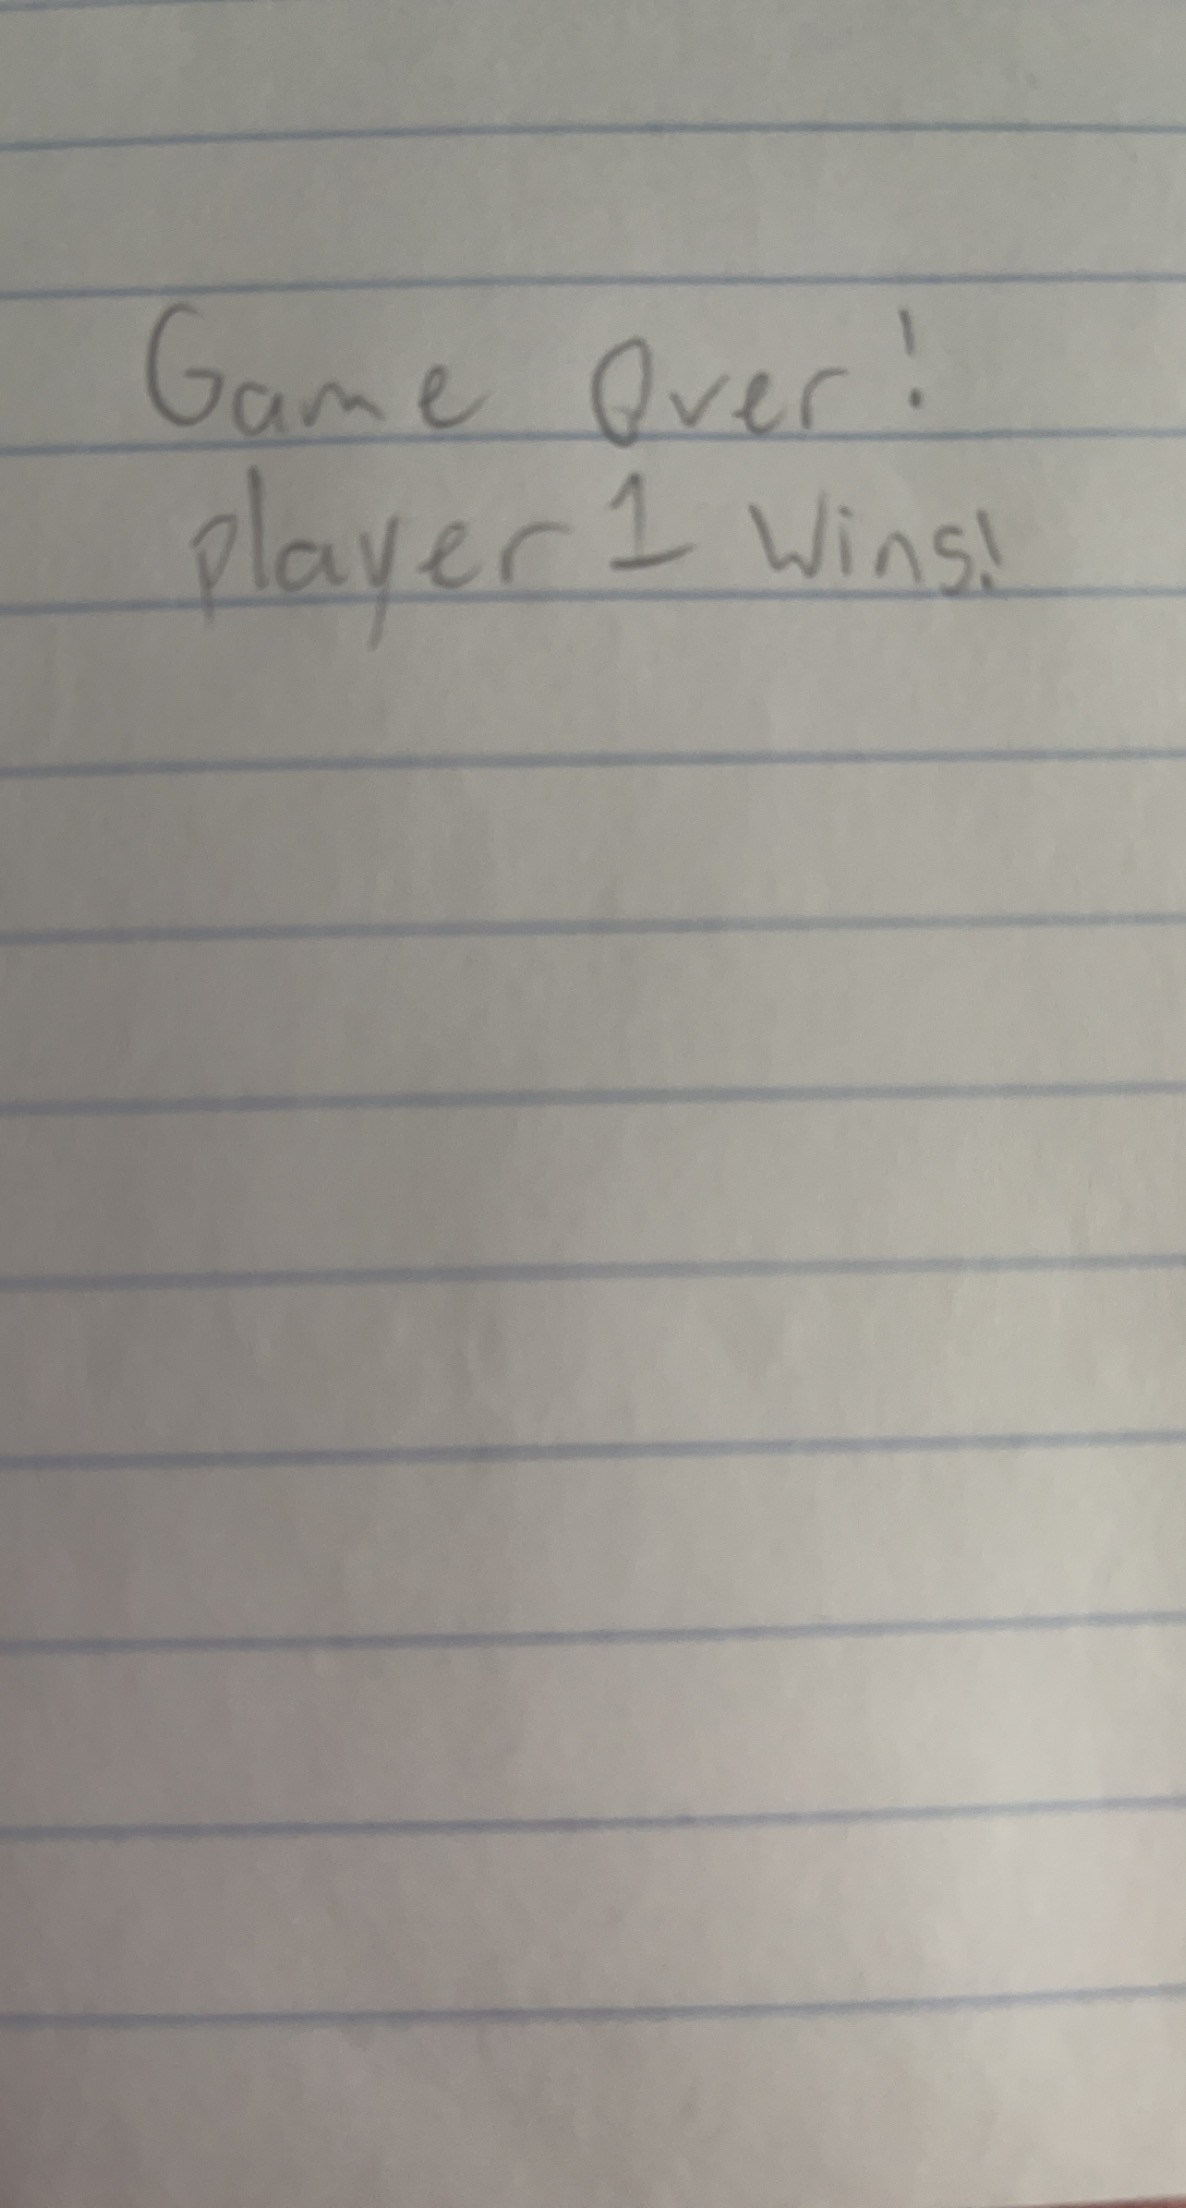 Game Over!
player 1 Wins!